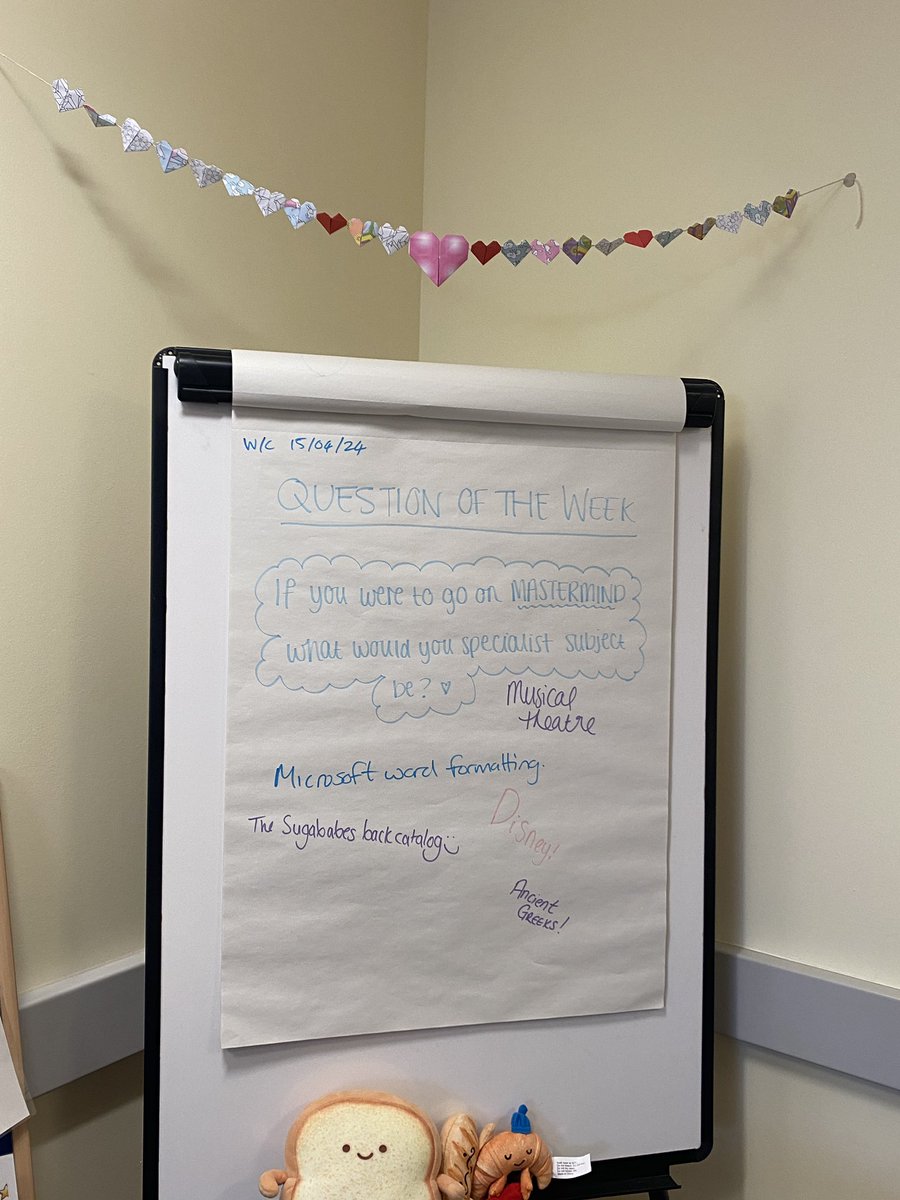 W/C 15/04/24
QUESTION OF THE WEEK
If you were to go on MASTERMIND
what would you specialist subject
be? ♡
Musical
theatre
Microsoft word formatting.
The Sugababes back catalog
Disney!
Ancient
GREEKS!